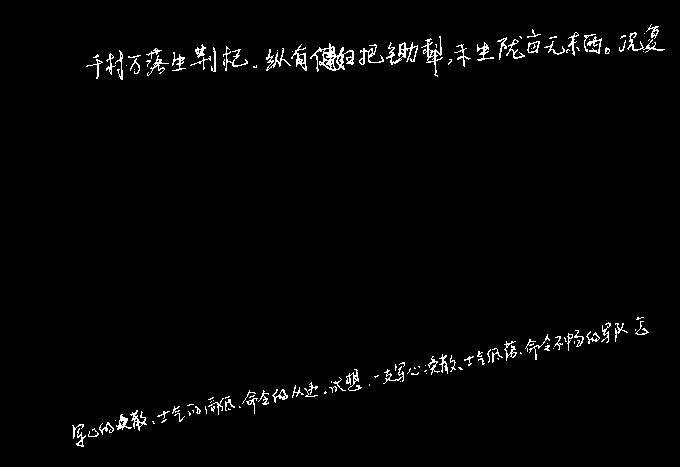 千村万落生荆杞。纵有健妇把锄犁,禾生陇亩无东西。况复
军心的涣散、士气的高低、命令的从违。试想,一支军心涣散、士气低落、命令不畅的军队怎